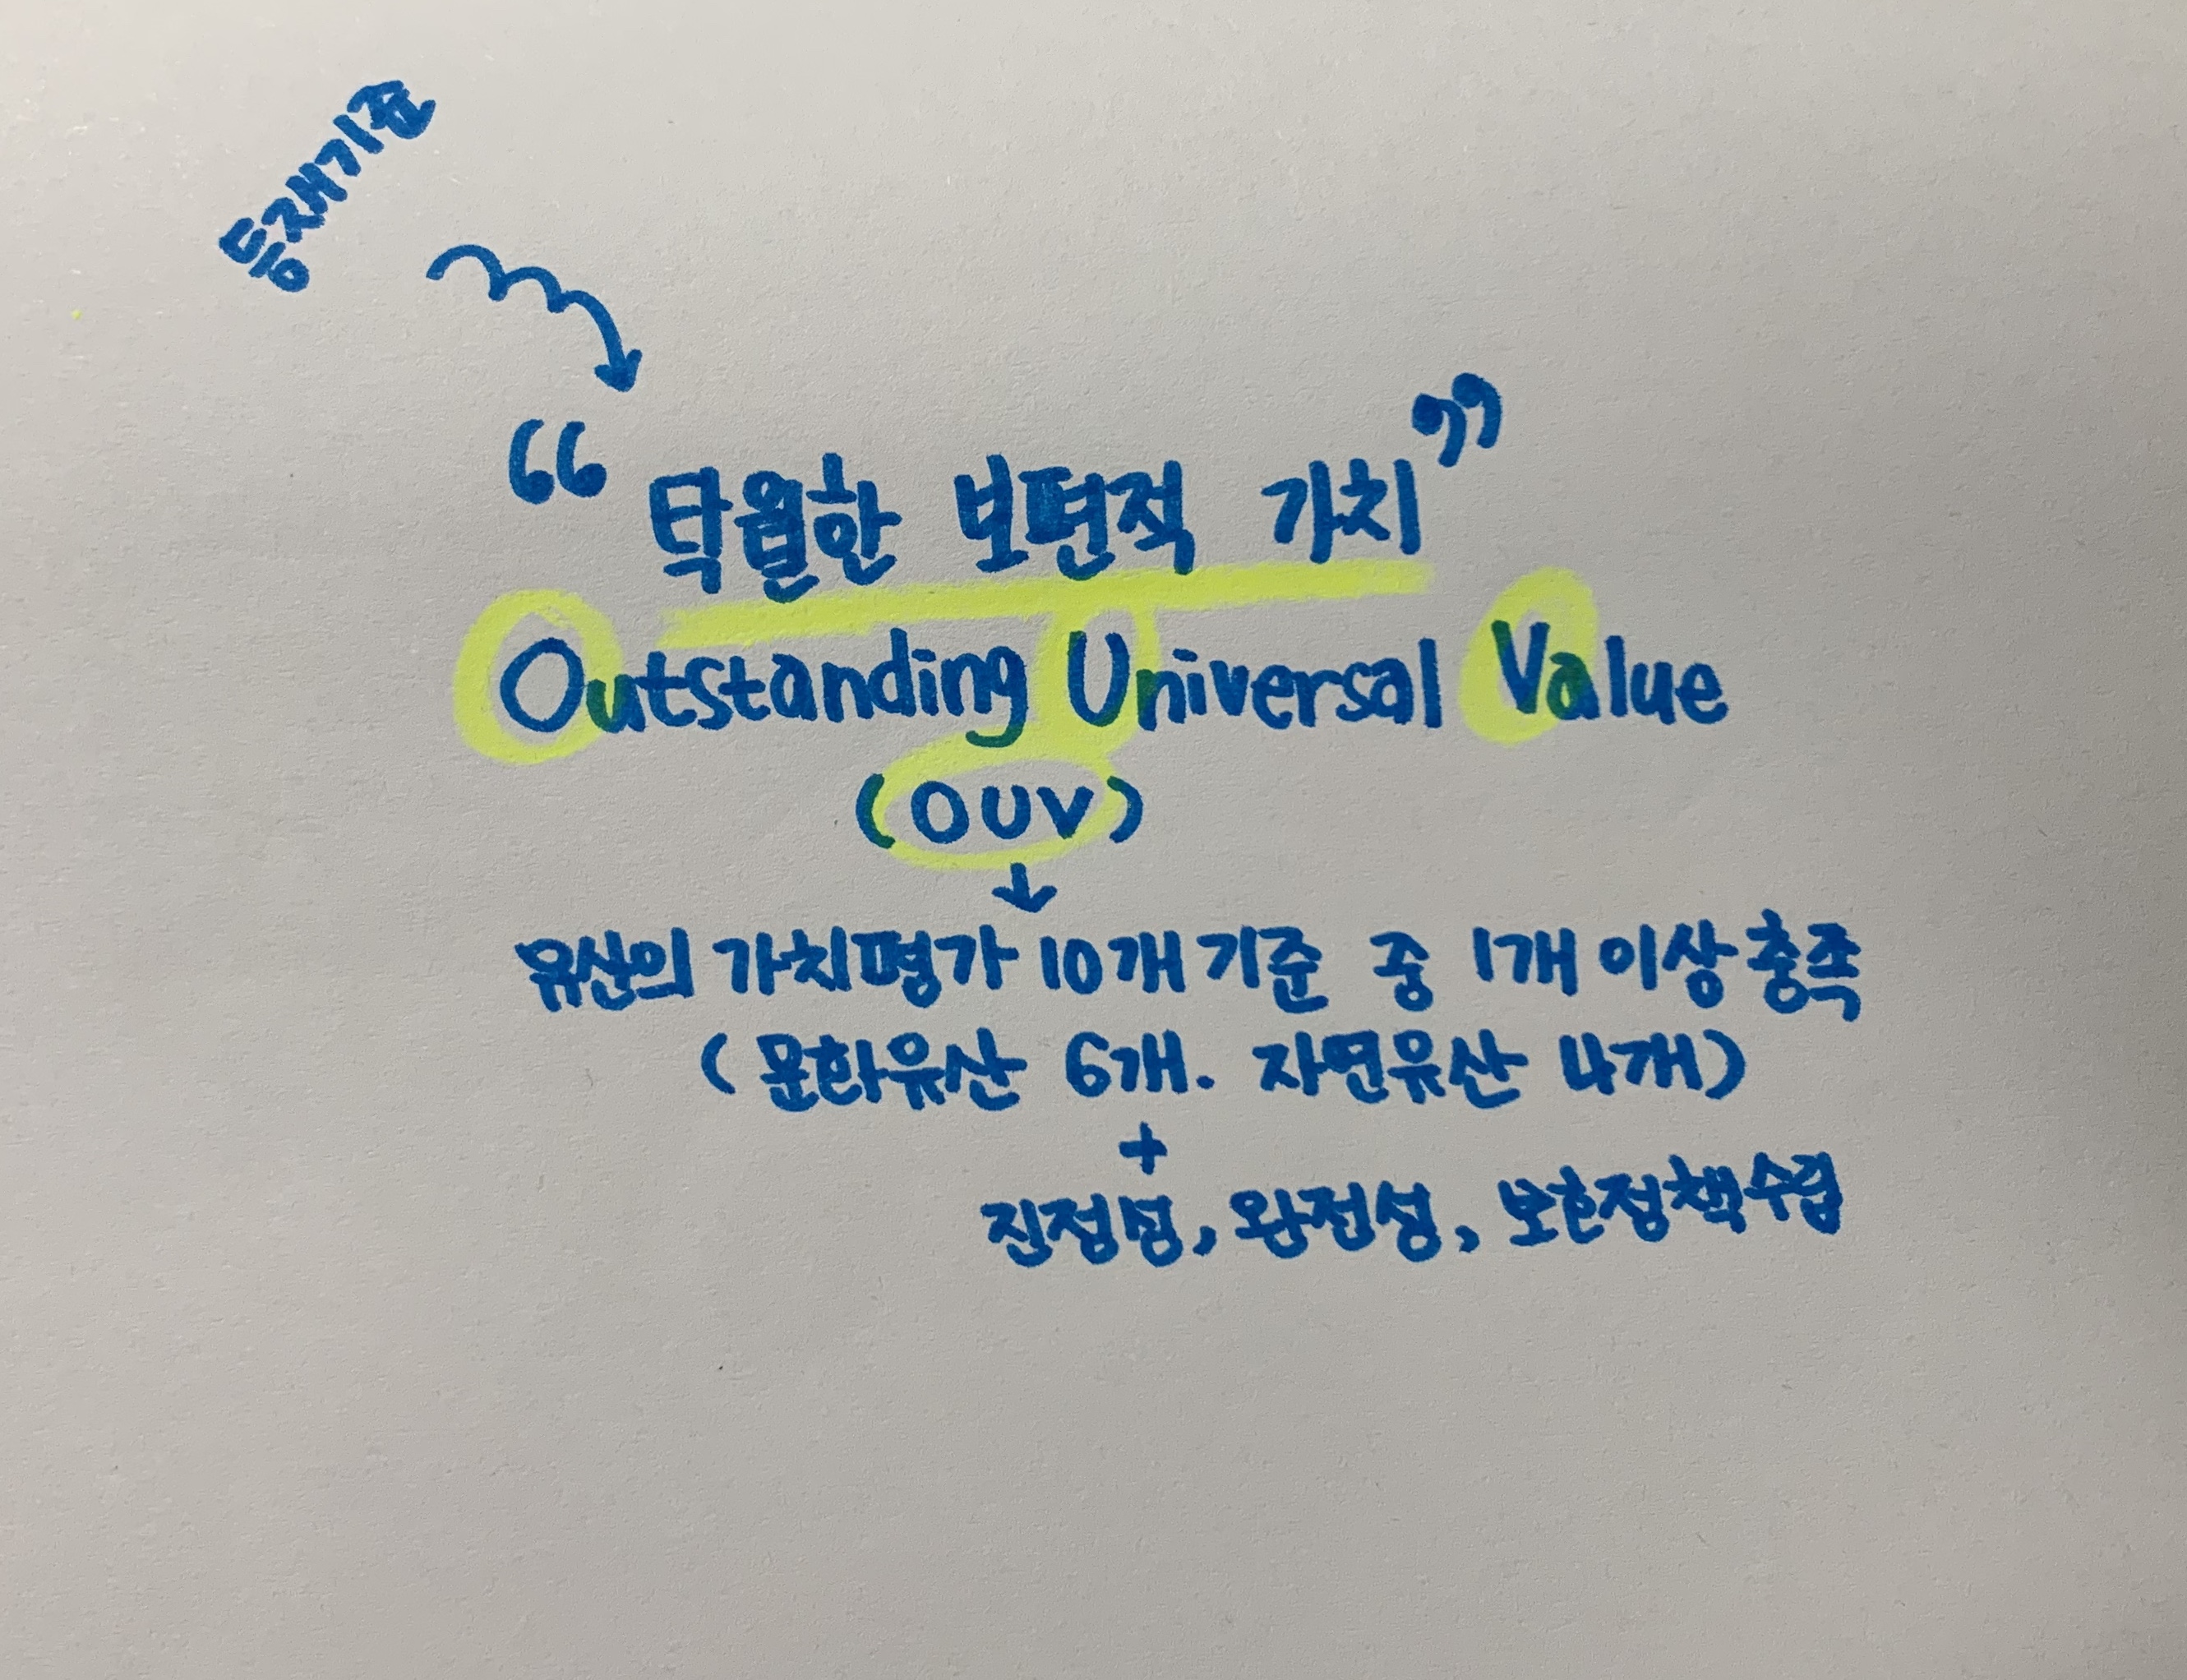 등재기준
“탁월한 보편적 가치”
Outstanding Universal Value
(OUV)
↓
유산의 가치평가 10개 기준 중 1개 이상 충족
(문화유산 6개. 자연유산 4개)
+
진정성, 완전성, 보호정책수립